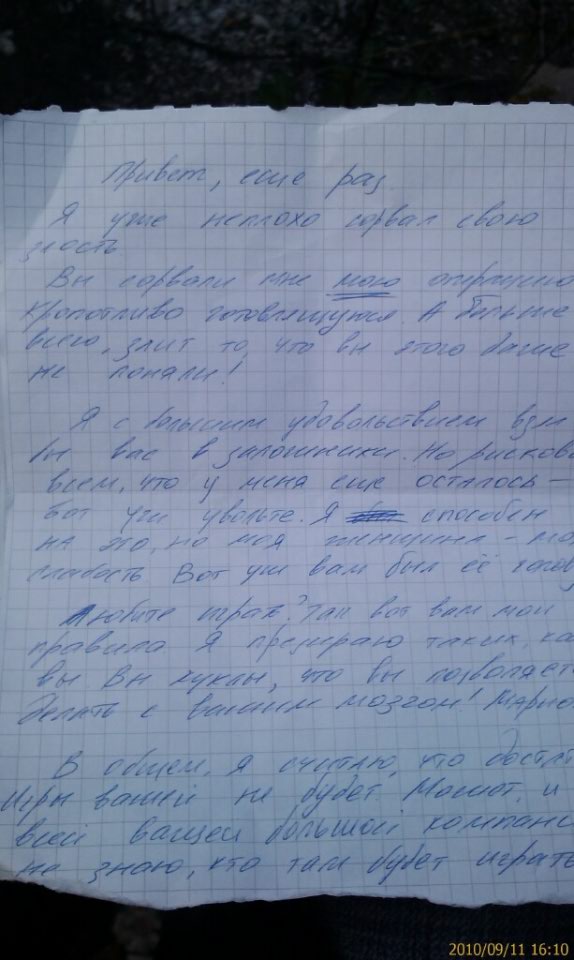 Привет, еще раз.
Я уже неплохо сорвал свою
злость
Вы сорвали мне мою операцию
Кропотливо готовящуюся. А больше
всего, злит то, что вы этого даже
не поняли!
Я с большим удовольствием взял
бы вас в заложники. Но рисковать
всем, что у меня еще осталось —
вот уж увольте. Я способен
на это, но моя женщина - моя
слабость Вот уж вам был её
Любите играх? Так вот вам мои
правила Я презираю таких, как
вы. Вы куклы, что вы позволяете
делать с вашим мозгом!
В общем, я считаю, что
Игры вашей не будет. Может, и
всей вашей большой компан
не знаю, кто там будет играть
2010/09/11 16:10